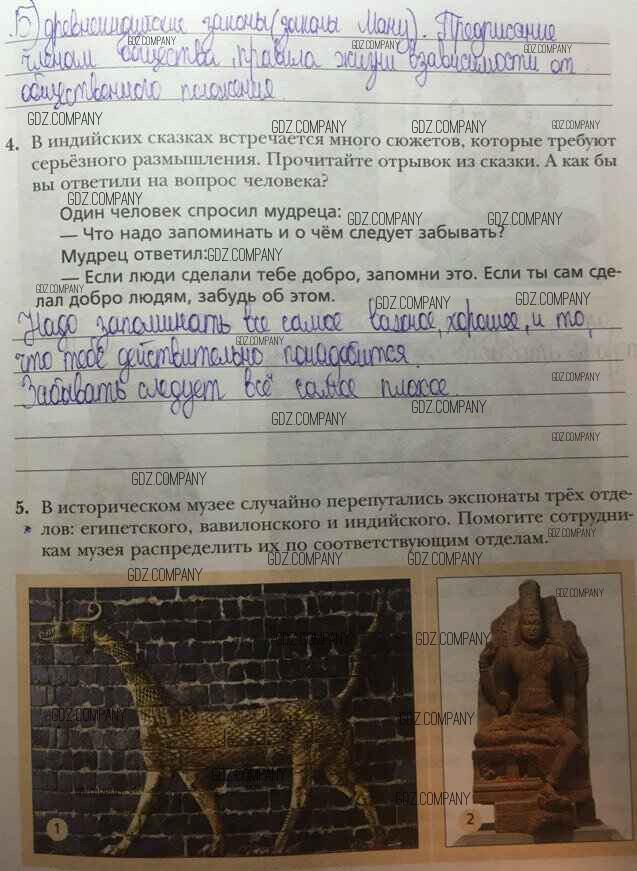 Б) древнеиндийские законы (законы Ману). Предписание
членам общества, правила жизни в зависимости от
общественного положения
4. В индийских сказках встречается много сюжетов, которые требуют
серьёзного размышления. Прочитайте отрывок из сказки. А как бы
вы ответили на вопрос человека?
Один человек спросил мудреца:
— Что надо запоминать и о чём следует забывать?
Мудрец ответил:
— Если люди сделали тебе добро, запомни это. Если ты сам сде-
лал добро людям, забудь об этом.
Надо запоминать всё самое важное, хорошее, и то,
что тебе действительно понадобится.
Забывать следует всё самое плохое.
5. В историческом музее случайно перепутались экспонаты трёх отде-
* лов: египетского, вавилонского и индийского. Помогите сотрудни-
кам музея распределить их по соответствующим отделам.
1
2
GDZ.COMPANY